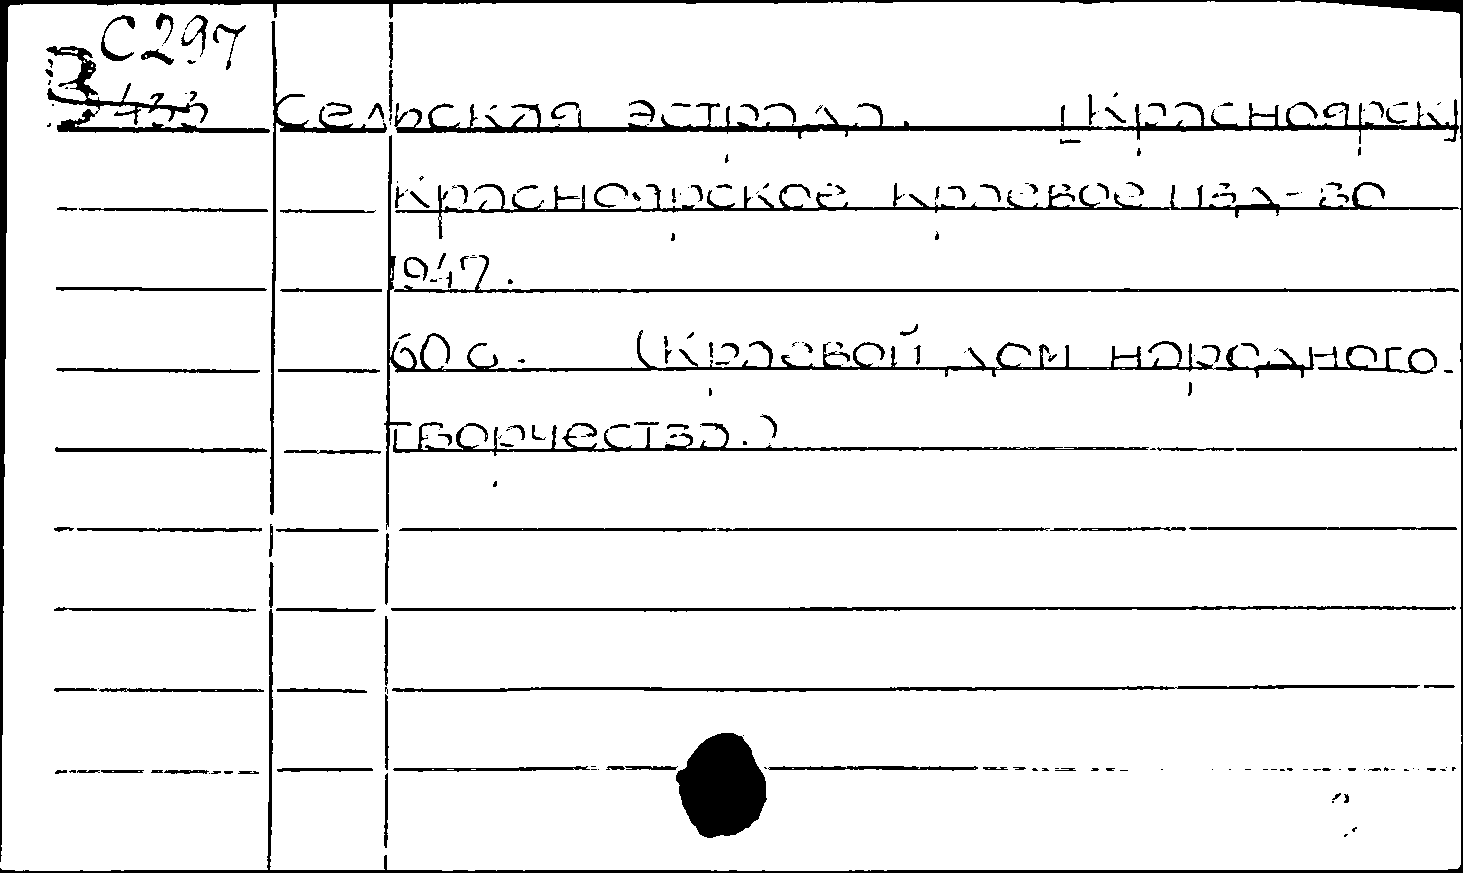 С297
В 433 Сельская эстрада. [Красноярск]
Красноярское краевое изд-во
1947.
60 с. (Краевой дом народного
творчества.)